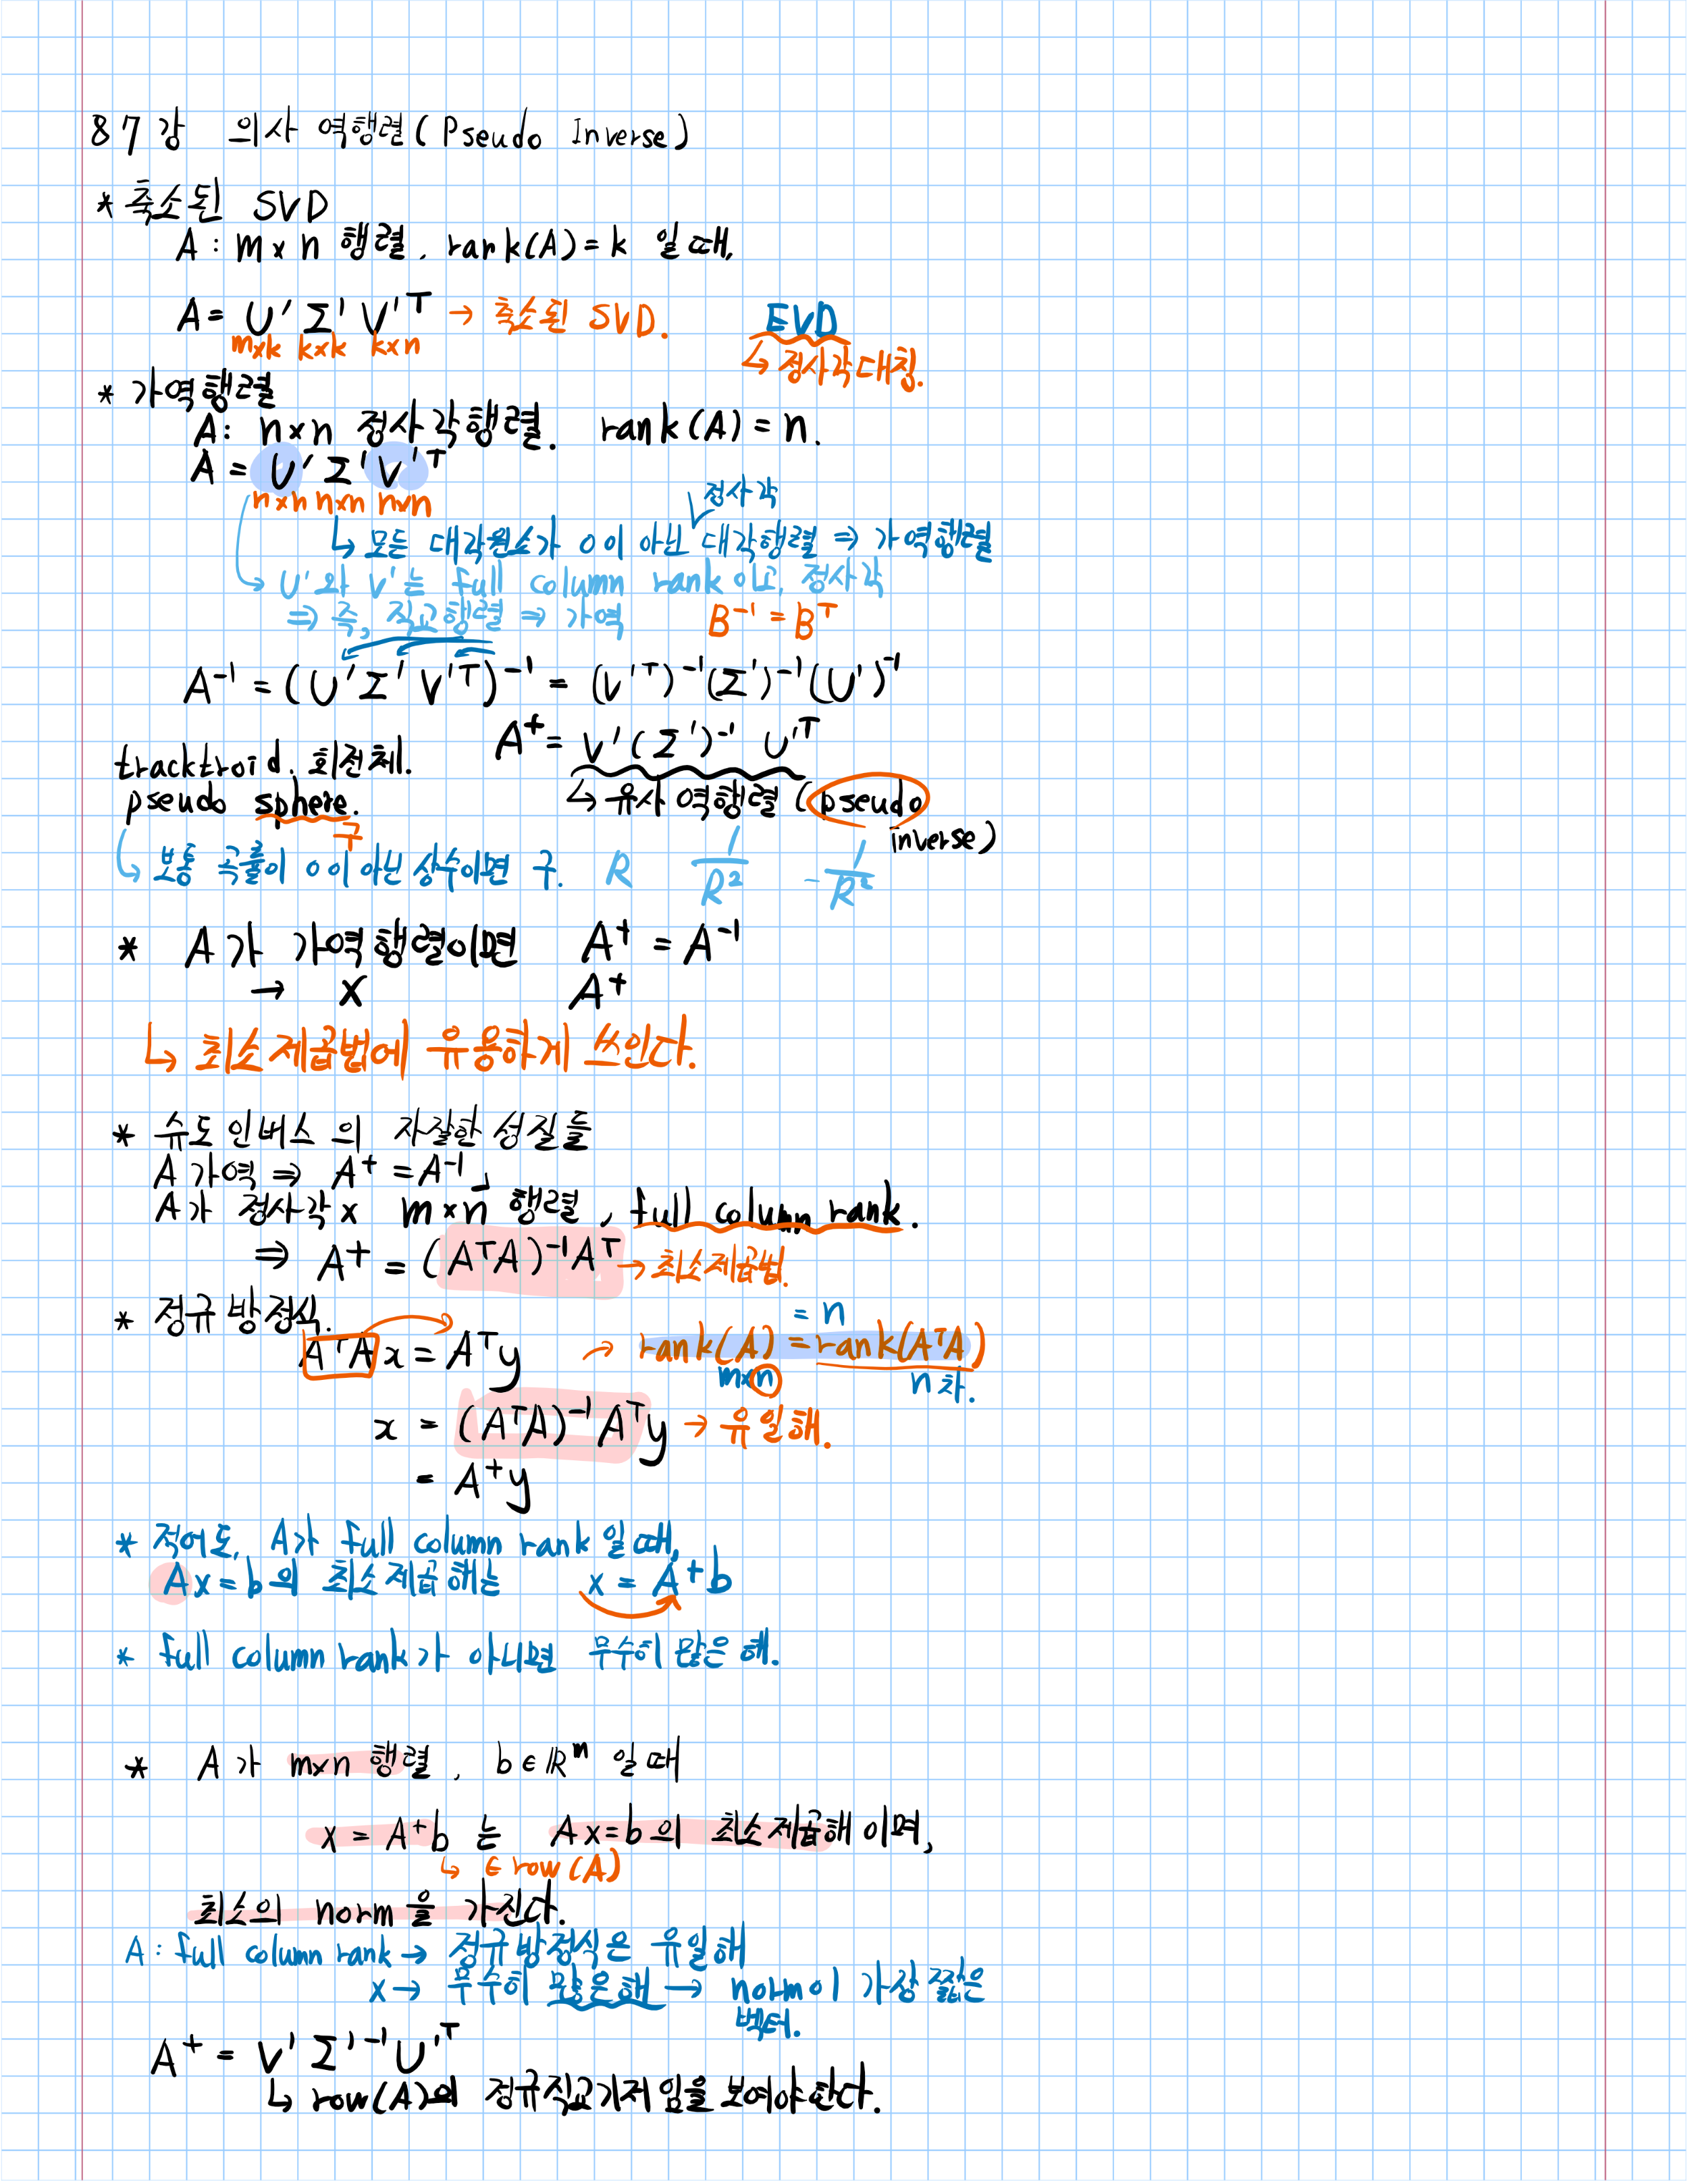 87강 의사 역행렬(Pseudo Inverse)
* 축소된 SVD
A : m×n 행렬, rank(A)=k 일 때,
A = U' Σ' V'ᵀ → 축소된 SVD. EVD
m×k k×k k×n ↳ 정사각대칭.
* 가역행렬
A: n×n 정사각행렬. rank(A) = n.
A = U' Σ' V'ᵀ
n×n n×n n×n 정사각
↳ 모든 대각원소가 0이 아닌 대각행렬 ⇒ 가역행렬
↳ U'와 V'는 full column rank이고, 정사각
⇒ 즉, 직교행렬 ⇒ 가역 B⁻¹ = Bᵀ
A⁻¹ = (U'Σ'V'ᵀ)⁻¹ = (V'ᵀ)⁻¹(Σ')⁻¹(U')⁻¹
A⁺ = V'(Σ')⁻¹ U'ᵀ
tracktroid. 회전체.
pseudo sphere. ↳ 유사 역행렬 (pseudo
구 inverse)
↳ 보통 곡률이 0이 아닌 상수이면 구. R 1/R² -1/R²
* A가 가역행렬이면 A⁺ = A⁻¹
→ X A⁺
↳ 최소제곱법에 유용하게 쓰인다.
* 슈도 인버스의 자잘한 성질들
A 가역 ⇒ A⁺ = A⁻¹
A가 정사각 x m×n 행렬, full column rank.
⇒ A⁺ = (AᵀA)⁻¹Aᵀ → 최소제곱법.
* 정규방정식. = n
AᵀA x = Aᵀy → rank(A) = rank(AᵀA)
m×n n차.
x = (AᵀA)⁻¹Aᵀy → 유일해.
= A⁺y
* 적어도, A가 full column rank일 때,
Ax=b의 최소제곱해는 x = A⁺b
* full column rank가 아니면 무수히 많은 해.
* A가 m×n 행렬, b∈ℝᵐ 일 때
x = A⁺b 는 Ax=b의 최소제곱해이며,
↳ ∈ row(A)
최소의 norm을 가진다.
A : full column rank → 정규방정식은 유일해
x → 무수히 많은해 → norm이 가장 짧은
벡터.
A⁺ = V' Σ'⁻¹ U'ᵀ
↳ row(A)의 정규직교기저임을 보여야한다.